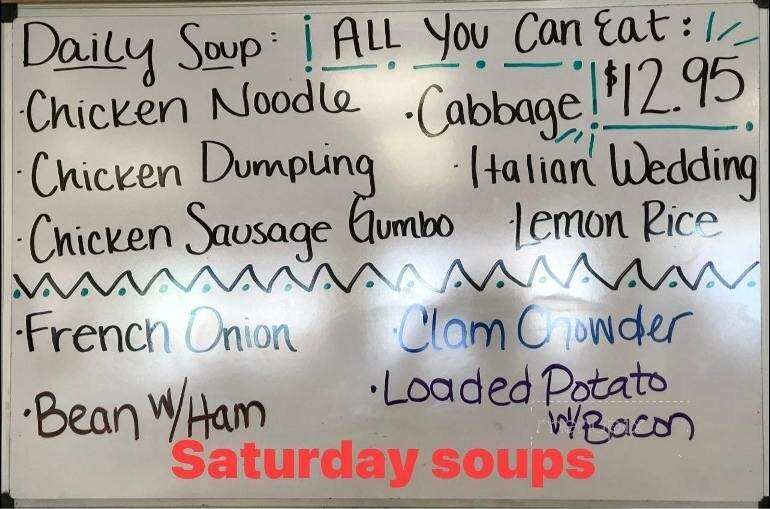 Daily Soup: ALL You Can Eat:
$12.95
·Chicken Noodle
·Cabbage
·Chicken Dumpling
·Italian Wedding
·Chicken Sausage Gumbo
·Lemon Rice
·French Onion
·Clam Chowder
·Bean W/Ham
·Loaded Potato
W/Bacon
Saturday soups